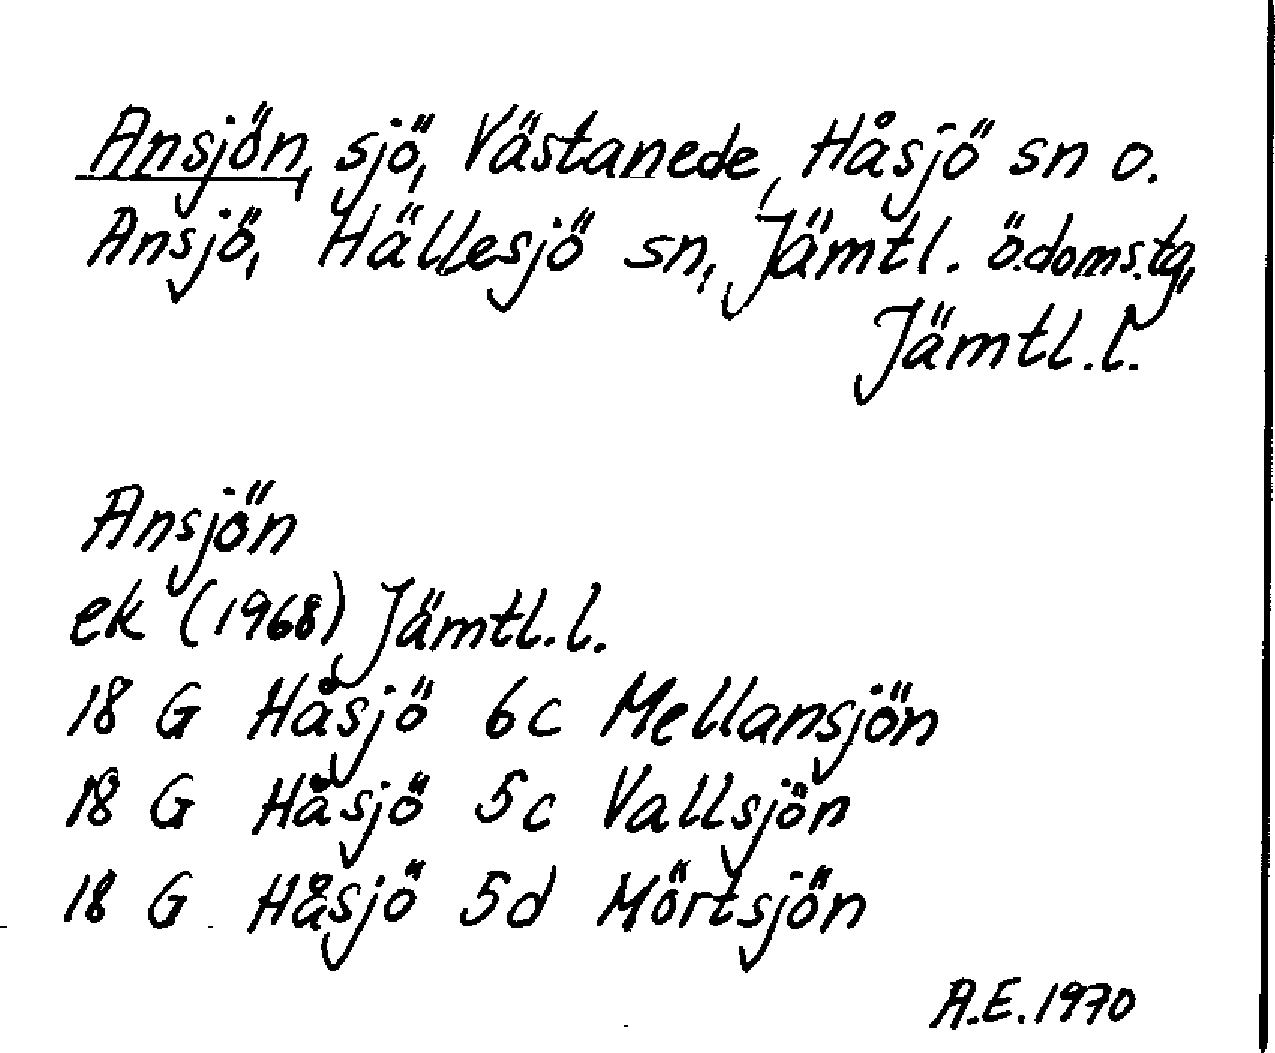 Ansjön, sjö, Västanede, Håsjö sn o.
Ansjö, Hällesjö sn, Jämtl. ö.doms.tg,
Jämtl.l.
Ansjön
ek (1968) Jämtl.l.
18 G Håsjö 6c Mellansjön
18 G Håsjö 5c Vallsjön
18 G Håsjö 5d Mörtsjön
A.E. 1970